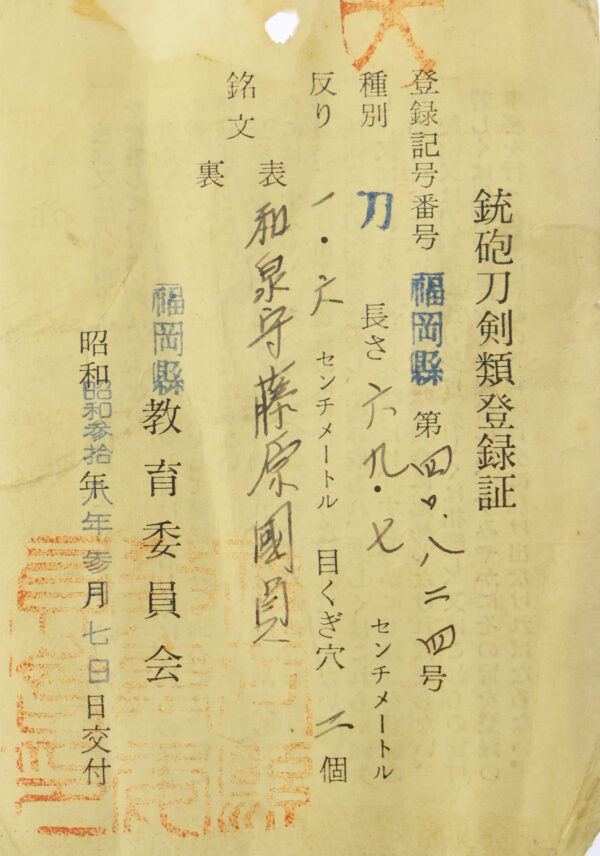 銃砲刀剣類登録証
登録記号番号 福岡縣 第四〇.八二四号
種別 刀 長さ 六九.七 センチメートル
反り 一.六 センチメートル 目くぎ穴 二 個
銘文 表 和泉守藤原國貞
裏
福岡縣 教育委員会
昭和 昭和参拾八年 年 参 月 七日 日交付